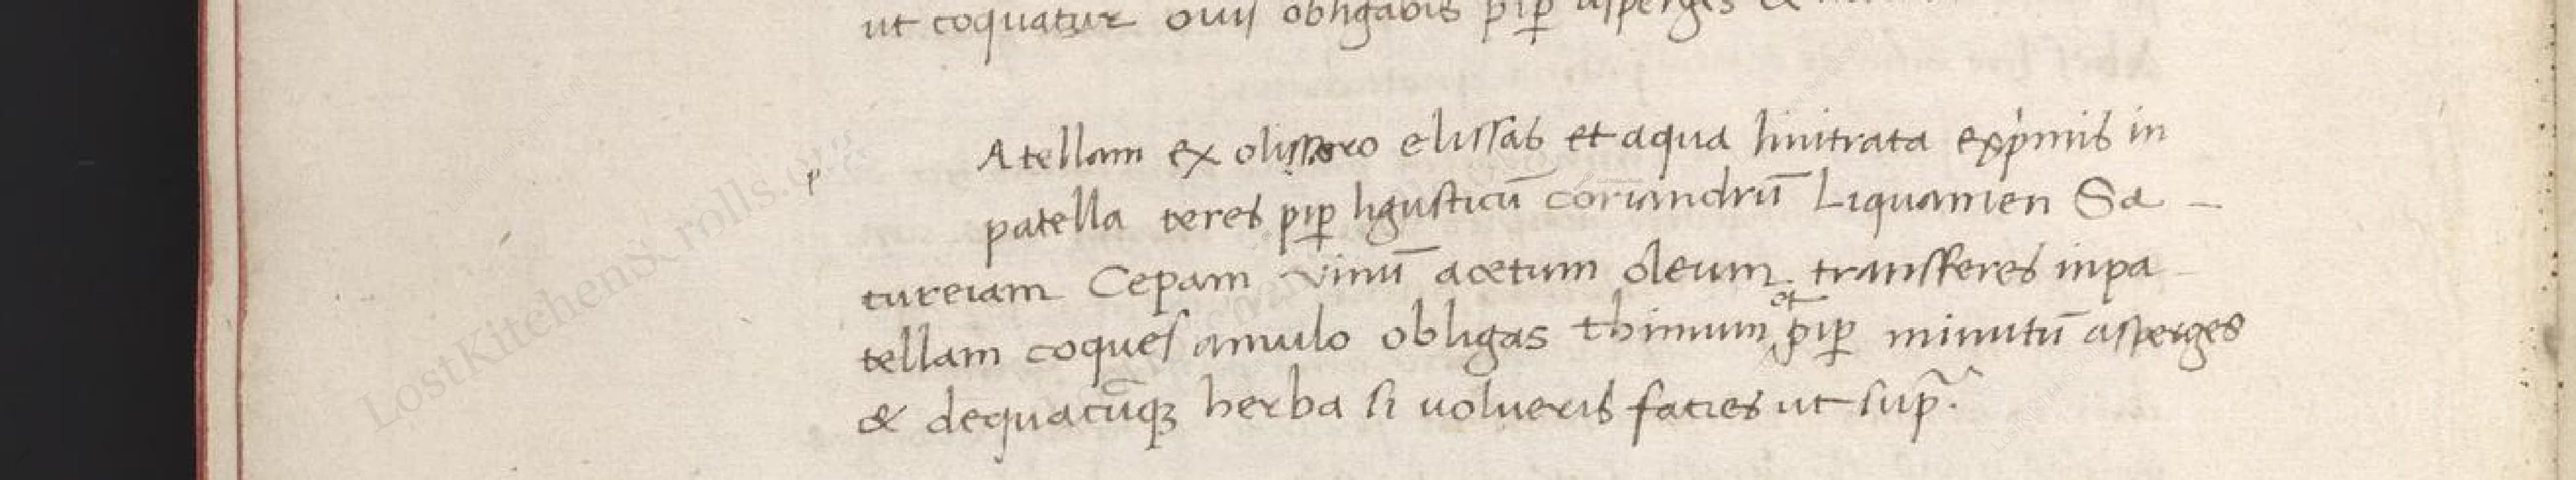 ut coquatur ouis obligabis pip̄ asperges &
Atellam ex olissero elissas et aqua linitrata exp̍mis in
p patella teres pip̄ ligusticū coriandrū Liquamen Sa -
tureiam Cepam vinū acetum oleum transferes inpa
tellam coques amulo obligas thimum et pip̄ minutū asperges
& dequacūq; herba si uolueris facies ut sup̄.
LostKitchenScrolls.org